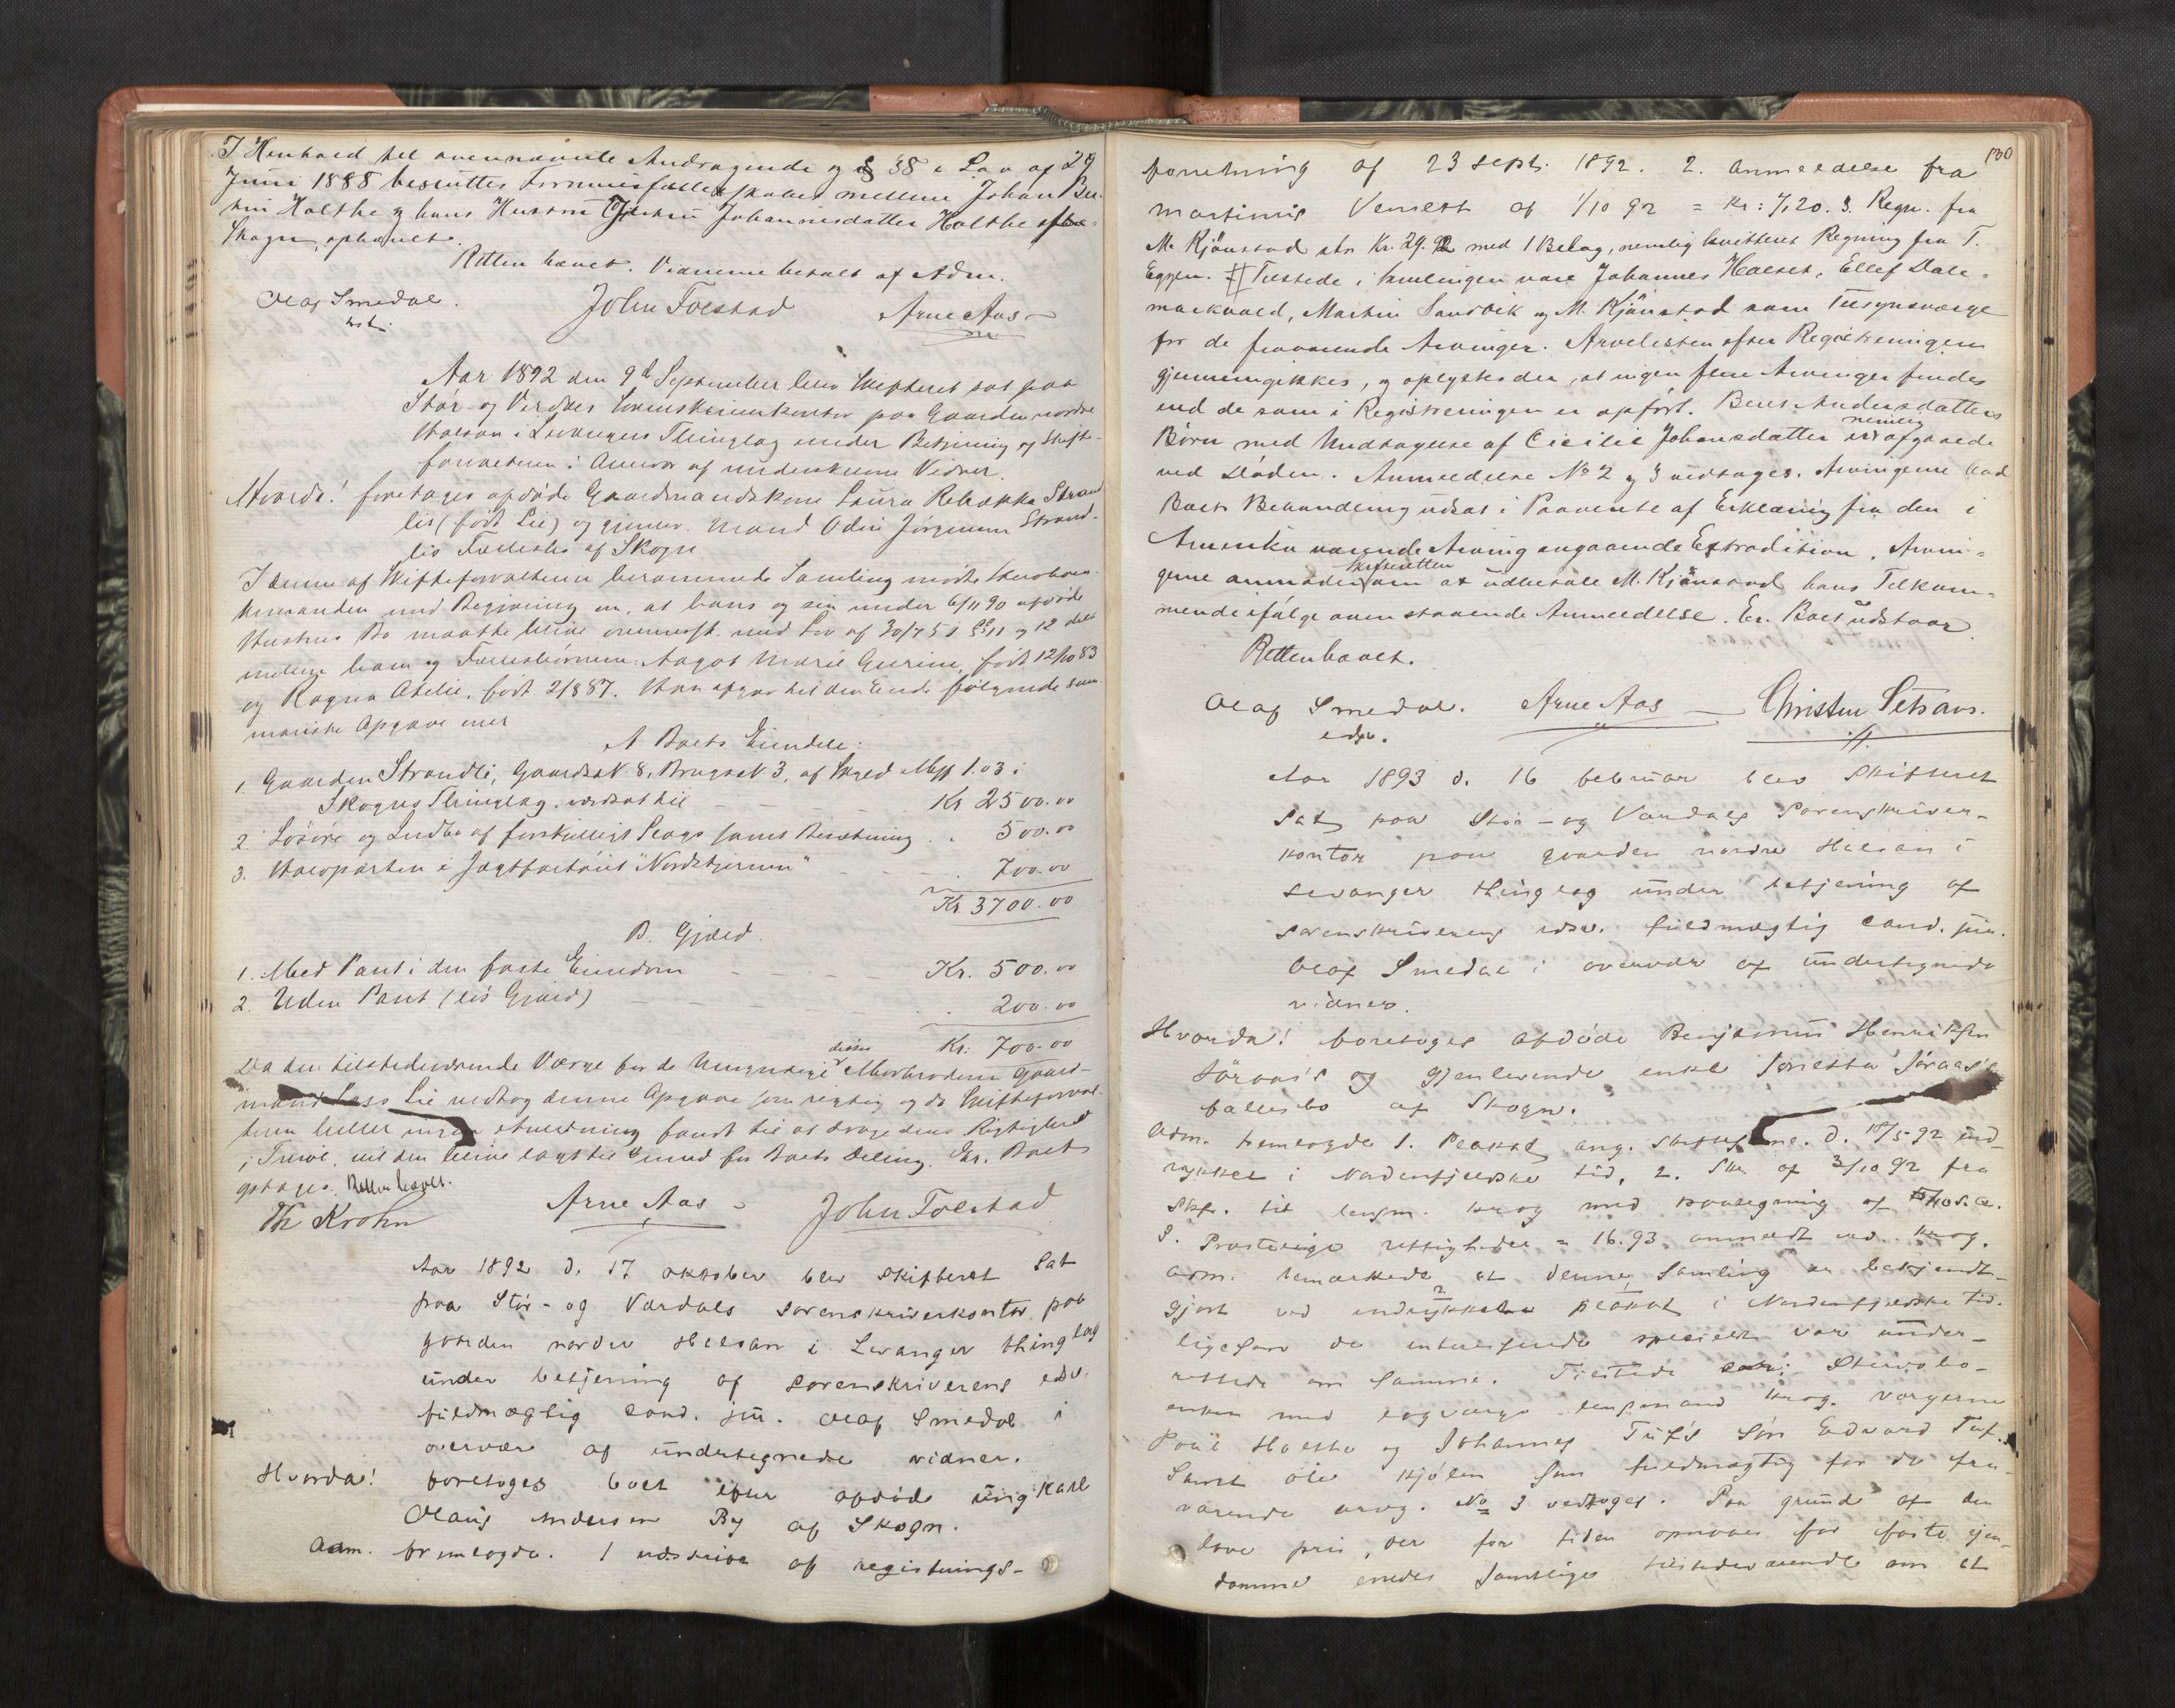 I Henhold til ovennævnte Andragende og § 38 i Lov af 29
Juni 1888 besluttes Formuesfællesskabet mellem Johan
Holthe og hans Hustru Johannesdatter Holthe
Skogn, ophævet.
Retten hævet. Vidnerne betalt af Adm.
Olaf Smedal. John Folstad Arne Aas
cst.
Aar 1892 den 9d September blev Skifteret sat paa
Stør- og Verdals Sorenskriverkontor paa Gaarden nordre
Halsan i Levangers Thinglag under Betjening af Skifte-
forvalteren i Overvær af underskrevne Vidner.
Hvorda! foretages afdøde Gaardmandskone Laura Rebekka Strand
lis (født Lie) og gjenlev. Mand Odin Jørgensen Strand-
lis Fællesbo af Skogn
I denne af Skifteforvalteren berammede Samling mødte Stervboen-
kemanden med Begjæring om, at hans og sin under 6/11 90 afdøde
Hustrus Bo maatte blive overensst. med Lov af 30/7 51 §§ 11 og 12 delt
mellem ham og Fællesbørnene: Aagot Marie Gurine, født 12/10 83
og Ragna Otelie, født 2/8 87. Han afgav til den Ende følgende sum-
mariske Opgave over
A Boets Eiendele:
1. Gaarden Strandli, Gaards N. 8, Brugs N 3, af Skyld Mk 1.03 i
Skogns Thinglag, værdsat til Kr 2500.00
2. Løsøre og Indbo af forskjelligt Slags samt Besætning 500.00
3. Halvparten i Jagtfartøiet "Nordstjernen" 700.00
Kr 3700.00
B. Gjæld.
1. Med Pant i den faste Eiendom Kr. 500.00
2. Uden Pant (løs Gjæld) 200.00
Kr: 700.00
Da den tilstedeværende Værge for de Umyndige, disses Morbroderen Gaard-
mand Lie vedtog denne Opgave som rigtig og da Skifteforval-
teren heller ingen Anledning fandt til at drage dens Rigtighed
i Tvivl, vil den blive lagt til Grund for Boets Deling. Er. Boet
optages. Retten hævet.
Th Krohn Arne Aas John Folstad
Aar 1892 d. 17 oktober blev skifteret sat
paa Stør- og Værdals sorenskriverkontor paa
gaarden nordre Halsan i Levanger thinglag
under betjening af sorenskriverens edsv.
fuldmægtig cand. jur. Olaf Smedal i
overvær af undertegnede vidner.
Hvorda! foretoges boet efter afdøde ungkarl
Olaus Andersen By af Skogn.
Adm. fremlagde. 1 udskrivt af registrerings-
130
forretning af 23 sept. 1892. 2. anmeldelse fra
af 1/10 92 = Kr: 7,20. 3. Regn. fra
M. Kjønstad stor Kr. 29.92 med 1 Belag, nemlig kvitteret Regning fra T.
Eggen. Tilstede i Samlingen vare Johannes Halset, Ellef Dale-
markvald, Martin Sandvik og M. Kjønstad som Tilsynsværge
for de fraværende Arvinger. Arvelisten efter Registreringen
gjennemgikkes, og oplystes der, at ingen flere Arvinger findes
end de som i Registreringen er opført. Beret Andersdatters
Børn med Undtagelse af Cicilie Johansdatter er nemlig afgaaede
ved Døden. Anmeldelse No 2 og 3 vedtages. Arvingerne bad
Boets Behandling udsat i Paavente af Erklæring fra den i
Amerika værende Arving angaaende Extradition. Arvin-
gerne anmodede skifteretten om at udbetale M. Kjønstad hans Tilkom-
mende ifølge ovenstaaende Anmeldelse. Er. Boet udstaar.
Retten hævet.
Olaf Smedal. Arne Aas Christen
edsv.
Aar 1893 d. 16 februar blev skifteret
sat paa Stør- og Værdals sorenskriver-
kontor paa gaarden nordre Halsan i
Levanger thinglag under betjening af
sorenskriverens edsv. fuldmægtig cand. jur.
Olaf Smedal i overvær af undertegnede
vidner.
Hvorda! foretoges afdøde Benjamin Henriksen
Søraas's og gjenlevende enke Søraas's
fællesbo af Skogn.
Adm. fremlagde 1. Plakat ang. d. 18/5 92 ind-
rykket i Nordenfjeldske tid, 2. Skr. af 3/10 92 fra
Skfr. til lensm. Krog med paategning af
3. Præstelige rettigheder = 16.93 anmeldt ved Krog.
Adm. bemærkede at denne samling er bekjendt-
gjort ved plakat i Nordenfjeldske tid.
ligesom de interesserede specielt var under-
rettede om samme. Tilstede var: Stervbo-
enken med lagværge lensmand Krog. værgerne
Poul Holthe og Johannes søn Edvard
samt Ole Kjølen som fuldmægtig for de fra-
værende arvg. No 3 vedtoges. Paa grund af den
lave pris, der for tiden opnaaes for faste ejen-
domme enedes samtlige tilstedeværende om at